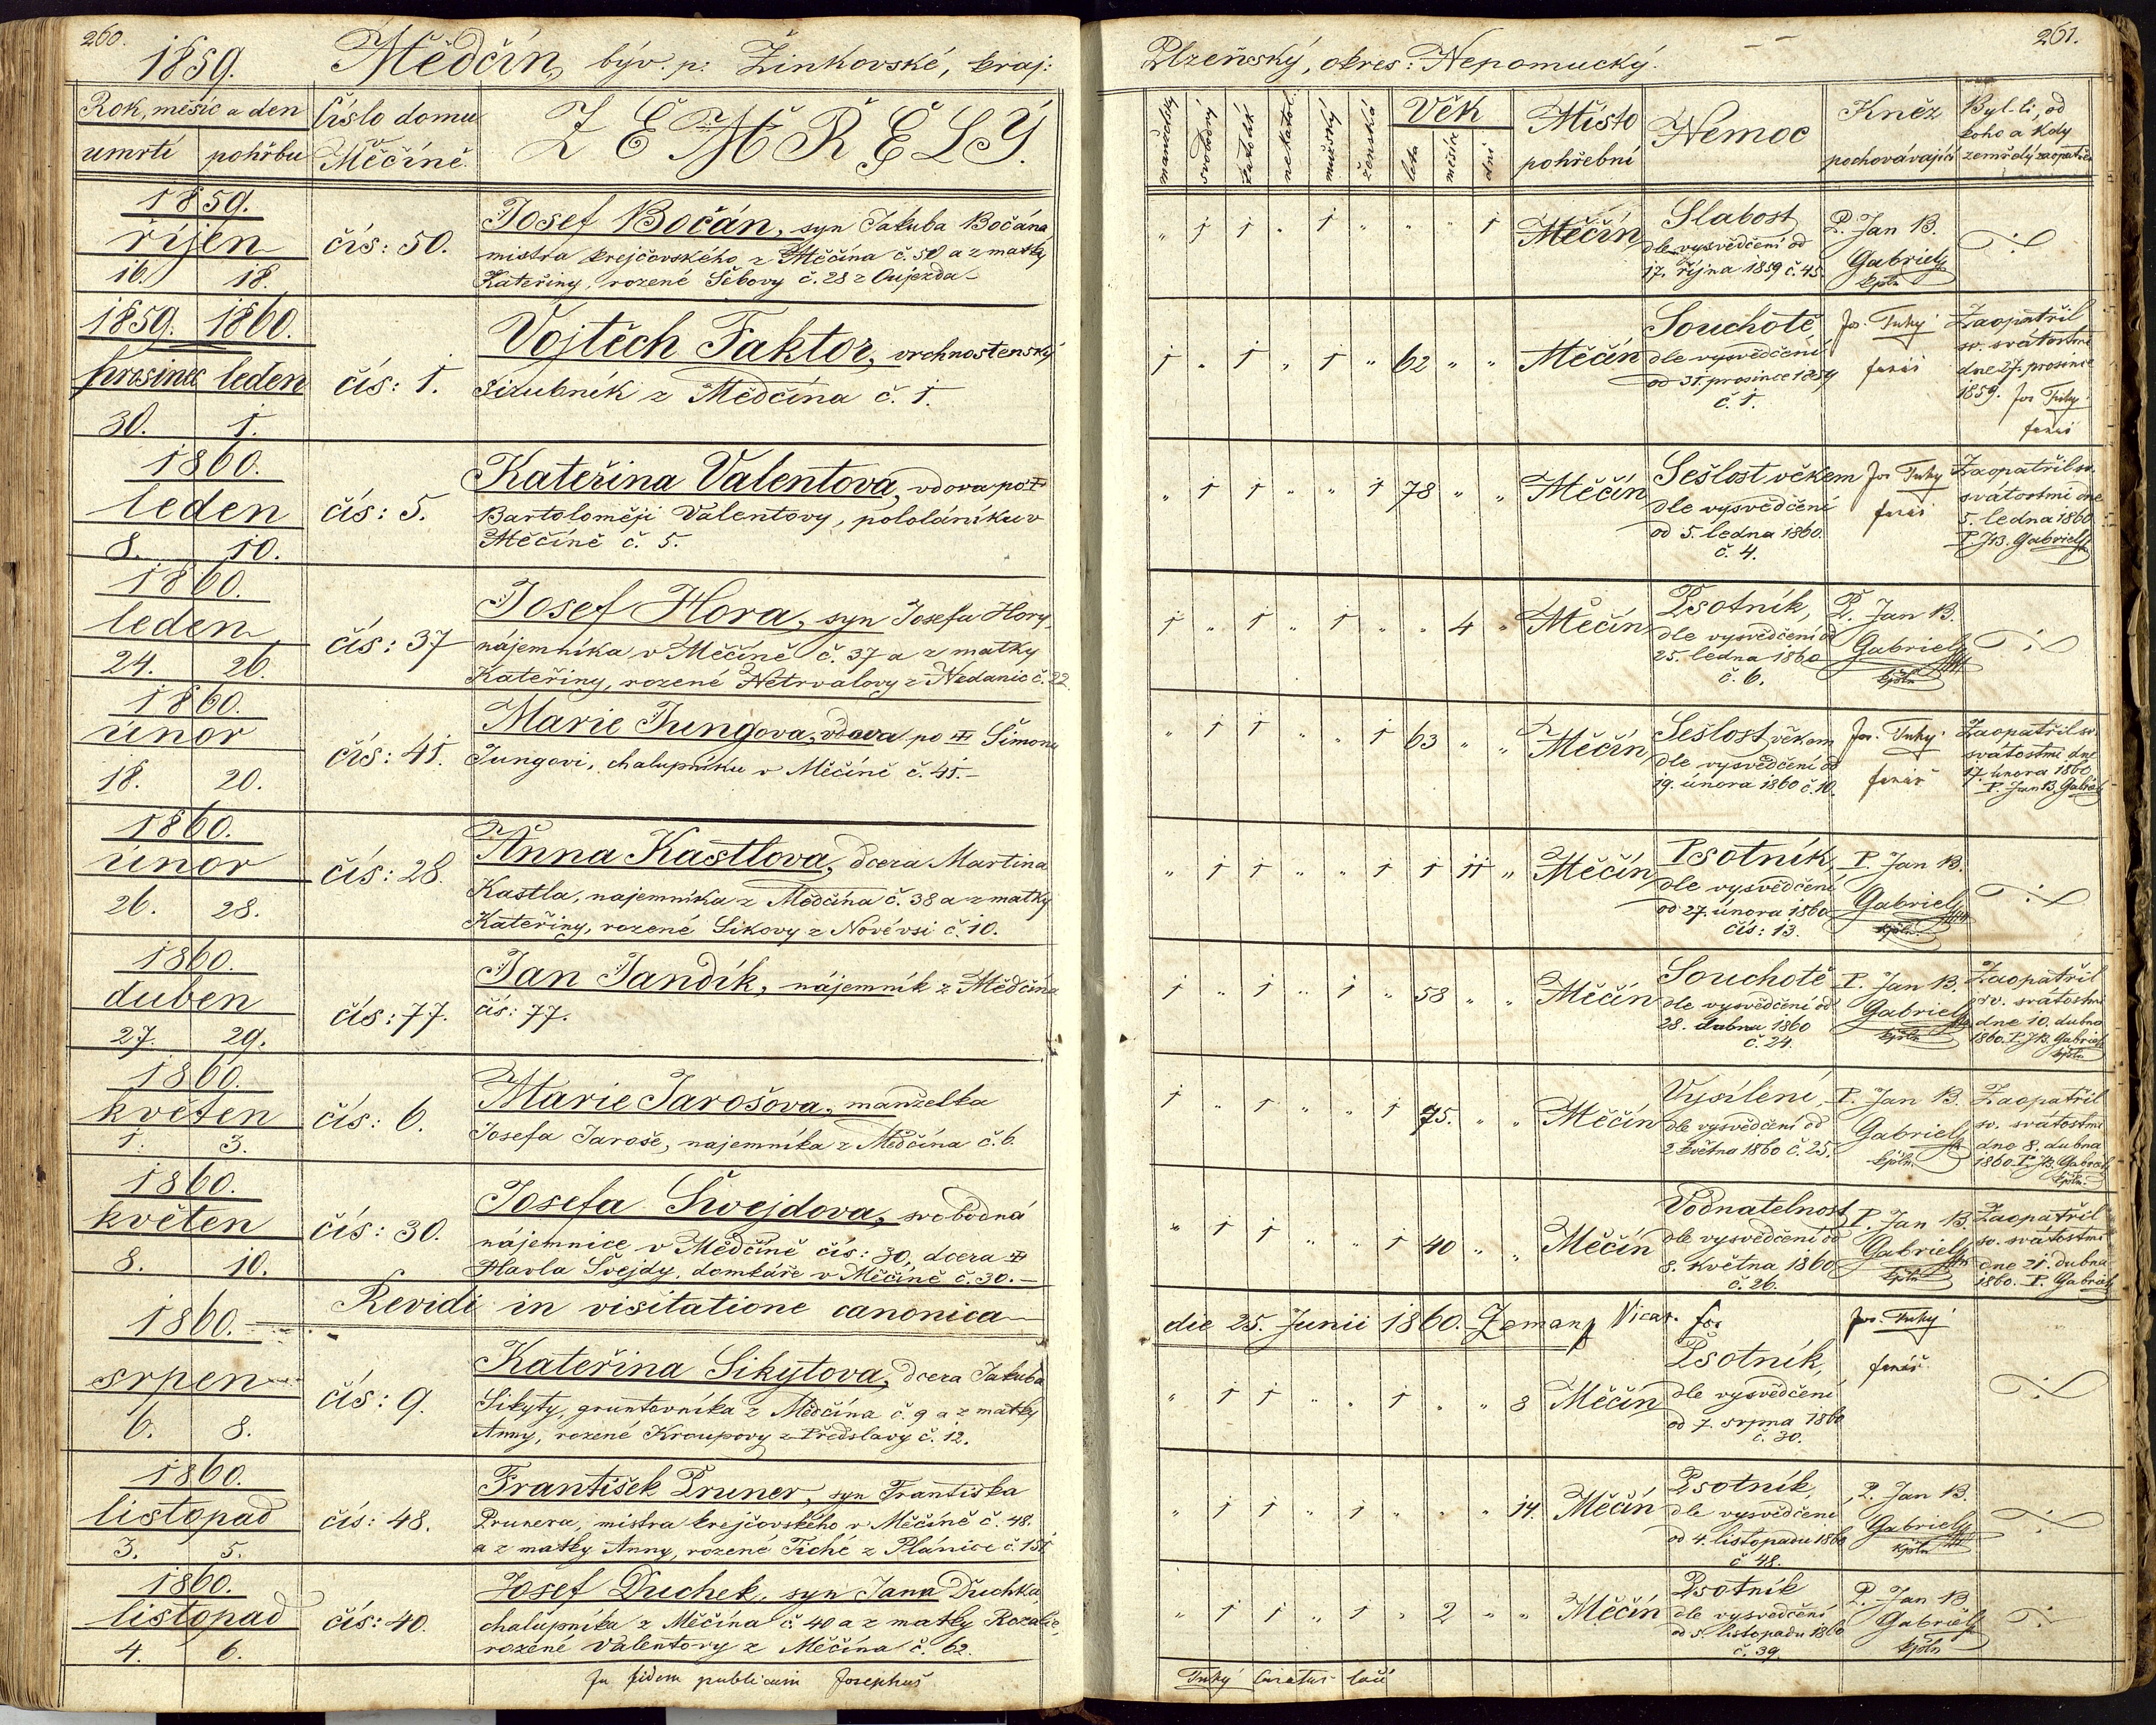 260.
1859. Mědčín, býv. p: Žinkovské, kraj:
Rok, měsíc a den
umrtí pohřbu
Číslo domu
v
Měčíně.
ZEMŘELÝ.
1859.
říjen
16. 18.
čís: 50.
Josef Bočán, syn Jakuba Bočána
mistra krejčovského z Měčína č. 50 a z matky
Kateřiny, rozené Šebovy č. 28 z Oujezda
1859. 1860.
prosinec leden
30. 1.
čís: 1.
Vojtěch Faktor, vrchnostenský
služebník z Mědčína č. 1.
1860.
leden
8. 10.
čís: 5.
Kateřina Valentova, vdova po
Bartoloměji Valentovy, pololáníku v
Měčíně č. 5.
1860.
leden
24. 26.
čís: 37
Josef Hora, syn Josefa Hory
nájemníka v Měčíně č. 37 a z matky
Kateřiny, rozené Netrvalovy z Nedanic č. 22
1860.
únor
18. 20.
čís: 41.
Marie Jungova, vdova po Šimonu
Jungovi, chalupníku v Měčíně č. 41.
1860.
únor
26. 28.
čís: 28.
Anna Kastlova, dcera Martina
Kastla, najemníka z Mědčína č. 38 a z matky
Kateřiny, rozené Sikovy z Novévsi č. 10.
1860.
duben
27. 29.
čís: 77.
Jan Jandík, nájemník z Mědčína
čís: 77.
1860.
květen
1. 3.
čís: 6.
Marie Jarošova, manželka
Josefa Jaroše, najemníka z Mědčína č. 6.
1860.
květen
8. 10.
čís: 30.
Josefa Švejdova, svobodná
nájemnice v Mědčíně čís: 30, dcera
Havla Švejdy, domkáře v Měčíně č. 30.
Revidi in visitatione canonica
1860.
srpen
6. 8.
čís: 9.
Kateřina Sikytova, dcera Jakuba
Sikyty, gruntovníka z Mědčína č. 9 a z matky
Anny, rozené Kroupovy z Předslavy č. 12.
1860.
listopad
3. 5.
čís: 48.
František Pruner, syn Františka
Prunera, mistra krejčovského v Měčíně č. 48.
a z matky Anny, rozené Tiché z Plánice č. 151
1860.
listopad
4. 6.
čís: 40.
Josef Duchek, syn Jana Duchka,
chalupníka z Měčína č. 40 a z matky Rozalie,
rozené Valentovy z Měčína č. 62.
In fidem publicam Josephus
261.
Plzeňský, okres: Nepomucký.
manželský svobodný katolík nekatol. mužský ženská
Věk
léta měsíc dní
Místo
pohřební
Nemoc
Kněz
pochovávající
Byl-li, od
koho a kdy
zemřelý zaopatřen
" 1 1 " 1 " " " 1
Měčín
Slabost
dle vysvědčení od
17. října 1859 č. 45
P. Jan B.
Gabriely
kpln
1 " 1 " 1 " 62 " "
Měčín
Souchotě
dle vysvědčení
od 31. prosince 1859
č. 1.
Jos. Tuhý
farář
Zaopatřil
sv. svátostmi
dne 27. prosince
1859. Jos Tuhý
farář
" 1 1 " " 1 78 " "
Měčín
Sešlost věkem
dle vysvědčení
od 5. ledna 1860.
č. 4.
Jos Tuhý
farář
Zaopatřil sv.
svátostmi dne
5. ledna 1860
P. J. B. Gabriely
1 " 1 " 1 " " 4 "
Měčín
Psotník,
dle vysvědčení od
25. ledna 1860
č. 6.
P. Jan B.
Gabriely
kpln
" 1 1 " " 1 63 " "
Měčín
Sešlost věkem
dle vysvědčení od
19. února 1860 č. 10.
Jos. Tuhý
farář
Zaopatřil sv.
svátostmi dne
17. února 1860
P. Jan B. Gabriely
" 1 1 " " 1 1 11 "
Měčín
Psotník,
dle vysvědčení
od 27. února 1860
čís: 13.
P. Jan B.
Gabriely
kpln
1 " 1 " 1 " 58 " "
Měčín
Souchotě
dle vysvědčení od
28. dubna 1860
č. 24.
P. Jan B.
Gabriely
kpln
Zaopatřil
sv. svátostmi
dne 10. dubna
1860. P. J. B. Gabriely
kpln
1 " 1 " " 1 75. " "
Měčín
Vysílení,
dle vysvědčení od
2 května 1860 č. 25.
P. Jan B.
Gabriely
kpln.
Zaopatřil
sv. svátostmi
dne 8. dubna
1860. P. J. B. Gabriely
kpln.
" 1 1 " " 1 40 " "
Měčín
Vodnatelnost
dle vysvědčení od
8. května 1860
č. 26.
P. Jan B.
Gabriely
kpln
Zaopatřil
sv. svátostmi
dne 21. dubna
1860. P. Gabriely
die 25. Junii 1860. Zeman Vicar.
" 1 1 " " 1 " " 8
Měčín
Psotník,
dle vysvědčení
od 7. srpna 1860
č. 30.
Jos. Tuhý
farář
" 1 1 " 1 " " " 14.
Měčín
Psotník,
dle vysvědčení
od 4. listopadu 1860
č 48.
P. Jan B.
Gabriely
kpln
" 1 1 " 1 " 2 " "
Měčín
Psotník
dle vysvědčení
od 5. listopadu 1860
č. 39.
P. Jan B
Gabriely
kpln
Tuhý Curatus loci